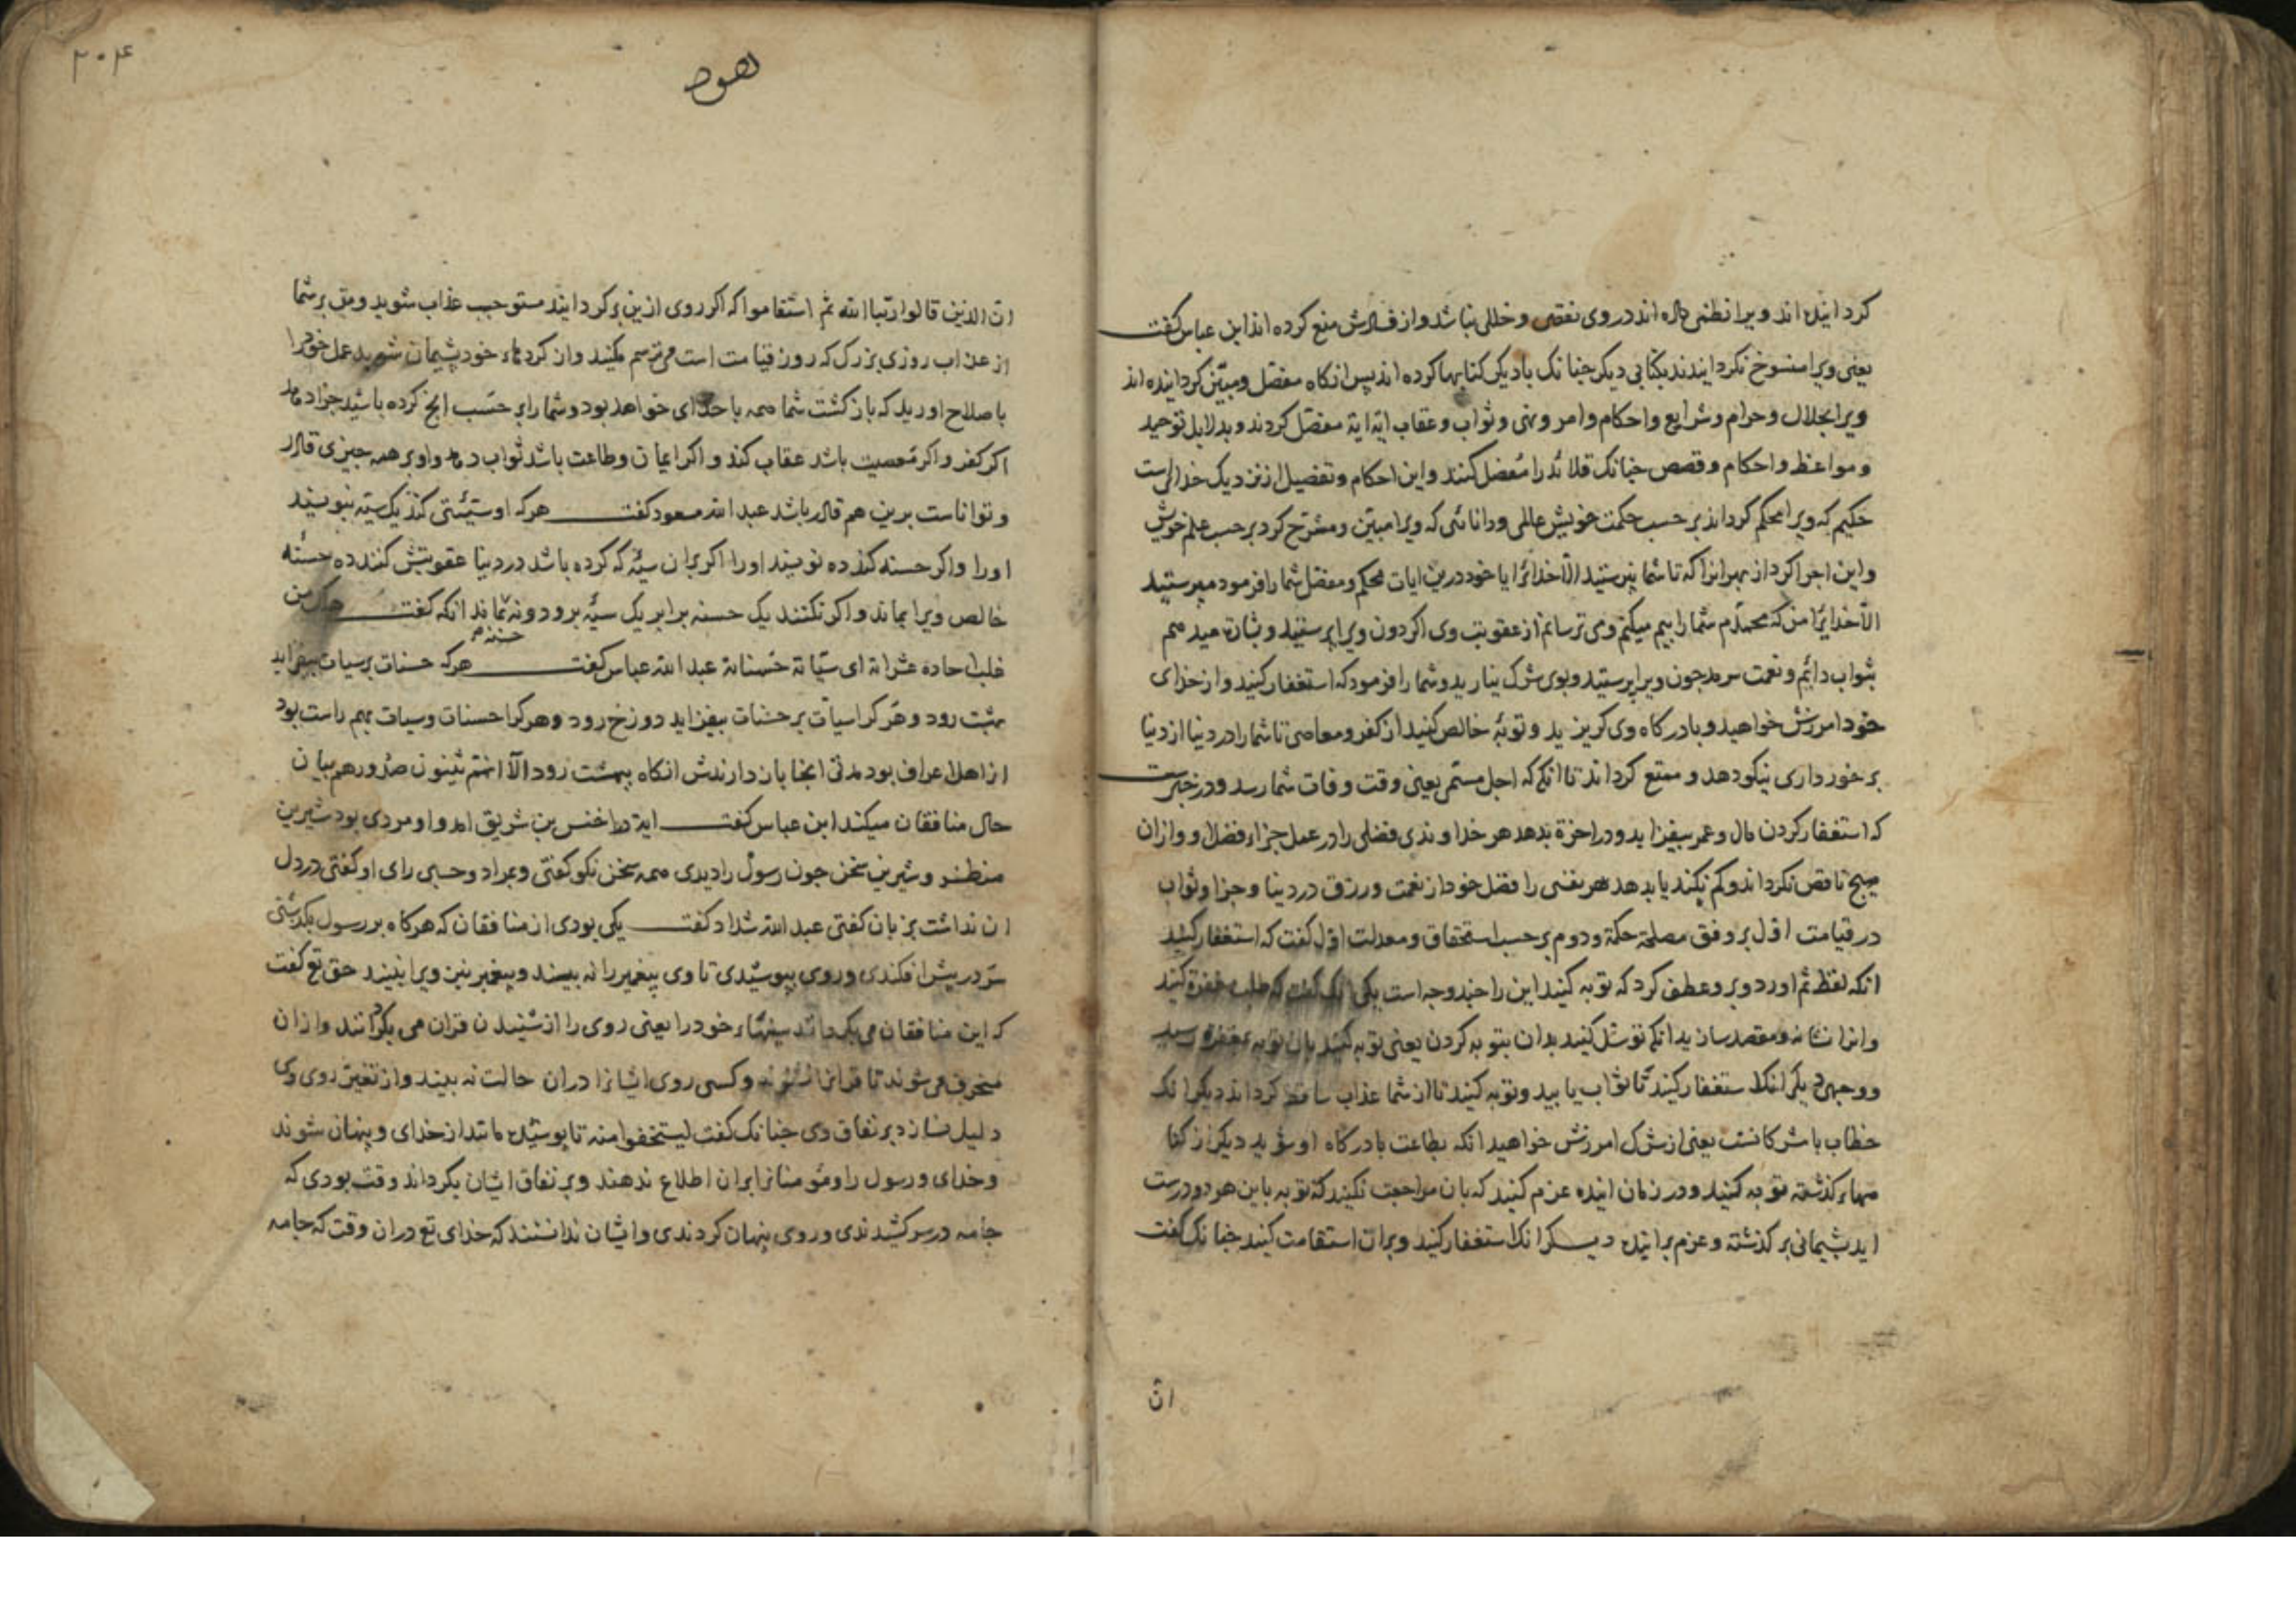 کردانیده اند ویرا نظمی داده اند در وی نقصی و خللی نباشد و از فسادش منع کرده اند ابن عباس کفت
یعنی ویرا منسوخ نکردانیدند بکتابی دیکر جنانک بادیکر کتابها کرده اند پس انکاه مفصل و مبین کردانیده اند
ویرا بحلال و حرام و شرایع و احکام و امر و نهی و ثواب و عقاب ایة ایة مفصل کردند و بدلایل توحید
و مواعظ و احکام و قصص جنانک قلائد را مفصل کنند و این احکام و تفصیل از نزدیک خدائیست
حکیم که ویرا محکم کرداند بر حسب حکمت خویش عالمی و دانائی که ویرا مبین و مشرح کرد بر حسب علم خویش
و این اجرا کرد از بهر انرا که تا شما نپرستید الا خدائرا یا خود درین ایات محکم و مفصل شما را فرمود مپرستید
الا خدایرا من که محمدم شما را بیم میکنم و می ترسانم از عقوبت وی اکر دون ویرا پرستید و بشارت میدهم
بثواب دائم و نعمت سرمد جون ویرا پرستید و بوی شرک نیارید و شما را فرمود که استغفار کنید و از خدای
خود امرزش خواهید و بادرکاه وی کریزید و توبهٔ خالص کنید از کفر و معاصی تا شما را در دنیا از دنیا
برخورداری نیکو دهد و ممتع کرداند تا انکه که اجل مستمی یعنی وقت وفات شما رسد و در خبرست
که استغفار کردن مال و عمر بیفزاید و در اخرة بدهد هر خداوندی فضلی را در عمل جزاء فضل او و ازان
هیج ناقص نکرداند و کم نکند یا بدهد هر نفسی را فضل خود از نعمت و رزق در دنیا و جزا و ثواب
در قیامت اول بر وفق مصلحة حکمة و دوم بر حسب استحقاق و معدلت اول کفت که استغفار کنید
انکه لفظ ثم اورد و برو عطف کرد که توبه کنید این را جند وجه است یکی انک کفت که طلب مغفرة کنید
و انرا نشانه و مقصد سازید انکه توسل کنید بدان بتوبه کردن یعنی توبه کنید تا بتوبه بمغفرة رسید
و وجهی دیکر انک استغفار کنید تا ثواب یابید و توبه کنید تا از شما عذاب ساقط کرداند دیکر انک
خطاب با مشرکانست یعنی از شرک امرزش خواهید انکه بطاعت بادرکاه او شوید دیکر از کنا
مهاء کذشته توبه کنید و در زمان اینده عزم کنید که بان مراجعت نکنید که توبه باین هر دو درست
اید پشیمانی بر کذشته و عزم بر اینده دیکر انک استغفار کنید و بران استقامت کنید جنانک کفت
ان
۲۰۴
هود
ان الذین قالوا ربنا الله ثم استقاموا که اکر روی ازین برکردانید مستوجب عذاب شوید و من بر شما
از عذاب روزی بزرک که روز قیامت است می ترسم مکنید و از کردهاء خود پشیمان شوید عمل خود را
باصلاح اورید که بازکشت شما همه باخدای خواهد بود و شما را بر حسب انج کرده باشید جزا دهد
اکر کفر و اکر معصیت باشد عقاب کند و اکر ایمان و طاعت باشد ثواب دهد و او بر همه جیزی قادر
و تواناست برین هم قادر باشد عبد الله مسعود کفت هر که او سیئتی کند یک سیئه بنویسند
اورا و اکر حسنه کند ده نویسند اورا اکر بران سیئه که کرده باشد در دنیا عقوبتش کنند ده حسنه
خالص ویرا بماند و اکر نکنند یک حسنه برابر یک سیئه برود و نه بماند انکه کفت هلک من
غلب احاده عشراته ای سیاته حسناته عبد الله عباس کفت هر که حسنات بر سیات بیفزاید
بهشت رود و هر کرا سیات بر حسنات بیفزاید دوزخ رود و هر کرا حسنات و سیات بهم راست بود
از اهل اعراف بود مدتی انجا بازدارندش انکاه ببهشت رود الا انهم یثنون صدورهم بیان
حال منافقان میکند ابن عباس کفت ایة در اخنس بن شریق امد و او مردی بود شیرین
منظر و شیرین سخن جون رسول را دیدی همه سخن نکو کفتی و بمراد و حسب رای او کفتی در دل
ان نداشت بزبان کفتی عبد الله شداد کفت یکی بودی از منافقان که هر کاه بر رسول بکذشتی
سر در پیش افکندی و روی بپوشیدی تا وی پیغمبر را نه بیند و پیغمبر نیز ویرا نبیند حق تع کفت
که این منافقان می بکردانند سینهاء خود را یعنی روی را از شنیدن قران می بکردانند و ازان
منحرف می شوند تا قرانرا نشنوند و کسی روی ایشانرا دران حالت نه بیند و از تغیر روی وی
دلیل نسازد بر نفاق وی جنانک کفت لیستخفوا منه تا پوشیده مانند از خدای و پنهان شوند
و خدای و رسول را و مومنانرا بران اطلاع ندهند و بر نفاق ایشان بکرداند وقت بودی که
جامه در سر کشیدندی و روی پنهان کردندی و ایشان ندانستند که خدای تع دران وقت که جامه